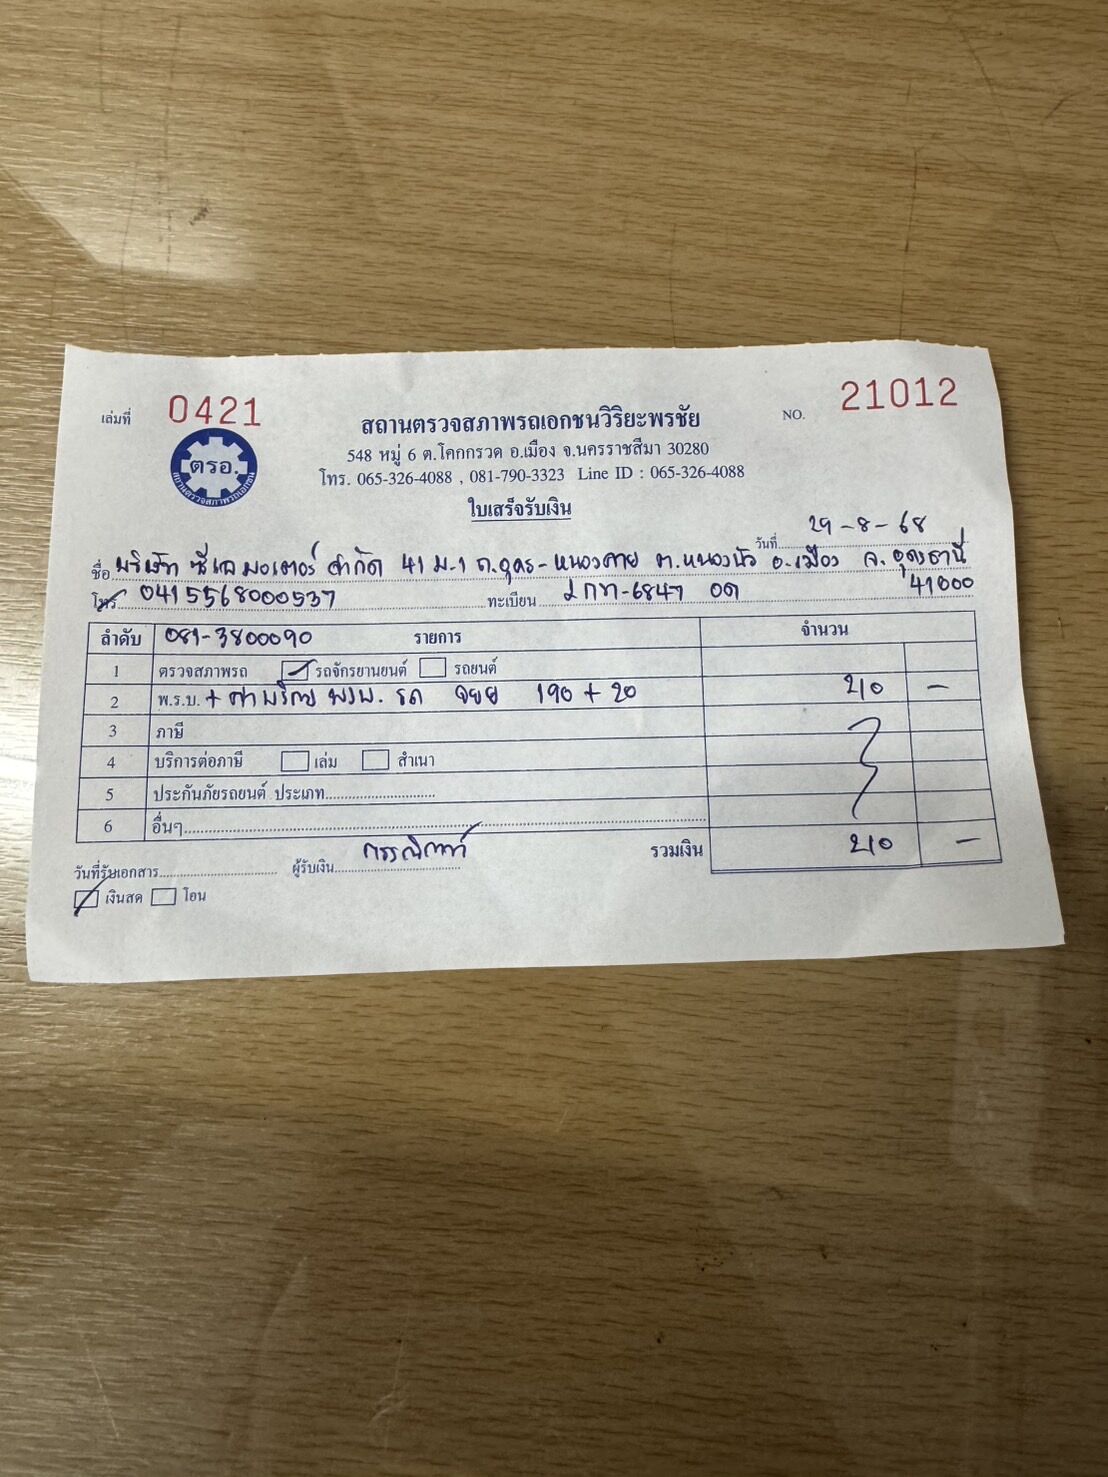 เล่มที่ 0421
สถานตรวจสภาพรถเอกชนวิริยะพรชัย
NO. 21012
ตรอ.
สถานตรวจสภาพรถเอกชน
548 หมู่ 6 ต.โคกกรวด อ.เมือง จ.นครราชสีมา 30280
โทร. 065-326-4088 , 081-790-3323 Line ID : 065-326-4088
ใบเสร็จรับเงิน
วันที่ 29-8-68
ชื่อ บริษัท ซีเอ มอเตอร์ จำกัด 41 ม.1 ถ.อุดร-หนองคาย ต.หนองบัว อ.เมือง จ.อุดรธานี
โทร 0415568000537 ทะเบียน 2กท-6847 อด 41000
ลำดับ 081-3800090 รายการ จำนวน
1 ตรวจสภาพรถ รถจักรยานยนต์ รถยนต์
2 พ.ร.บ. + ค่าบริการ พรบ. รถ จยย 190 + 20 210 -
3 ภาษี
4 บริการต่อภาษี เล่ม สำเนา
5 ประกันภัยรถยนต์ ประเภท
6 อื่นๆ
รวมเงิน 210 -
วันที่รับเอกสาร ผู้รับเงิน
เงินสด โอน